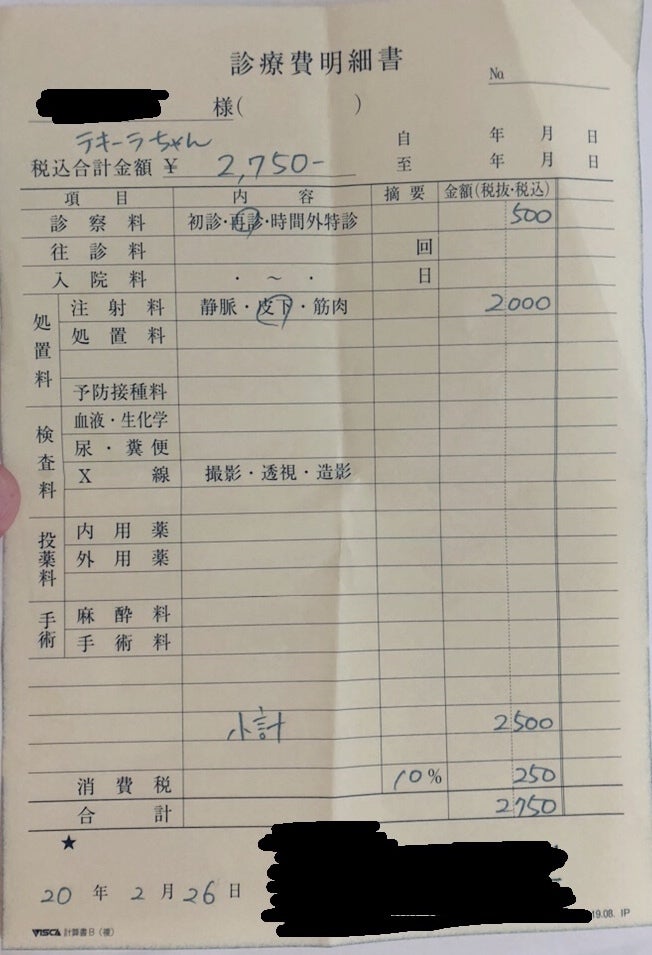 診療費明細書
No.
様( )
テキーラちゃん
自 年 月 日
税込合計金額 ¥ 2,750-
至 年 月 日
項目 内容 摘要 金額(税抜・税込)
診察料 初診・再診・時間外特診 500
往診料 回
入院料 ・ ～ ・ 日
処置料
注射料 静脈・皮下・筋肉 2000
処置料
予防接種料
検査料
血液・生化学
尿・糞便
X線 撮影・透視・造影
投薬料
内用薬
外用薬
手術
麻酔料
手術料
小計 2500
消費税 10% 250
合計 2750
★
20年2月26日
VISCA 計算書B(複)
19.08. 1P